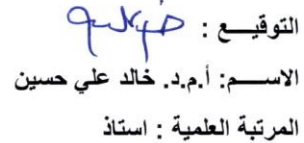 التوقيـــع :
الاســـم: أ.م.د. خالد علي حسين
المرتبة العلمية : استاذ